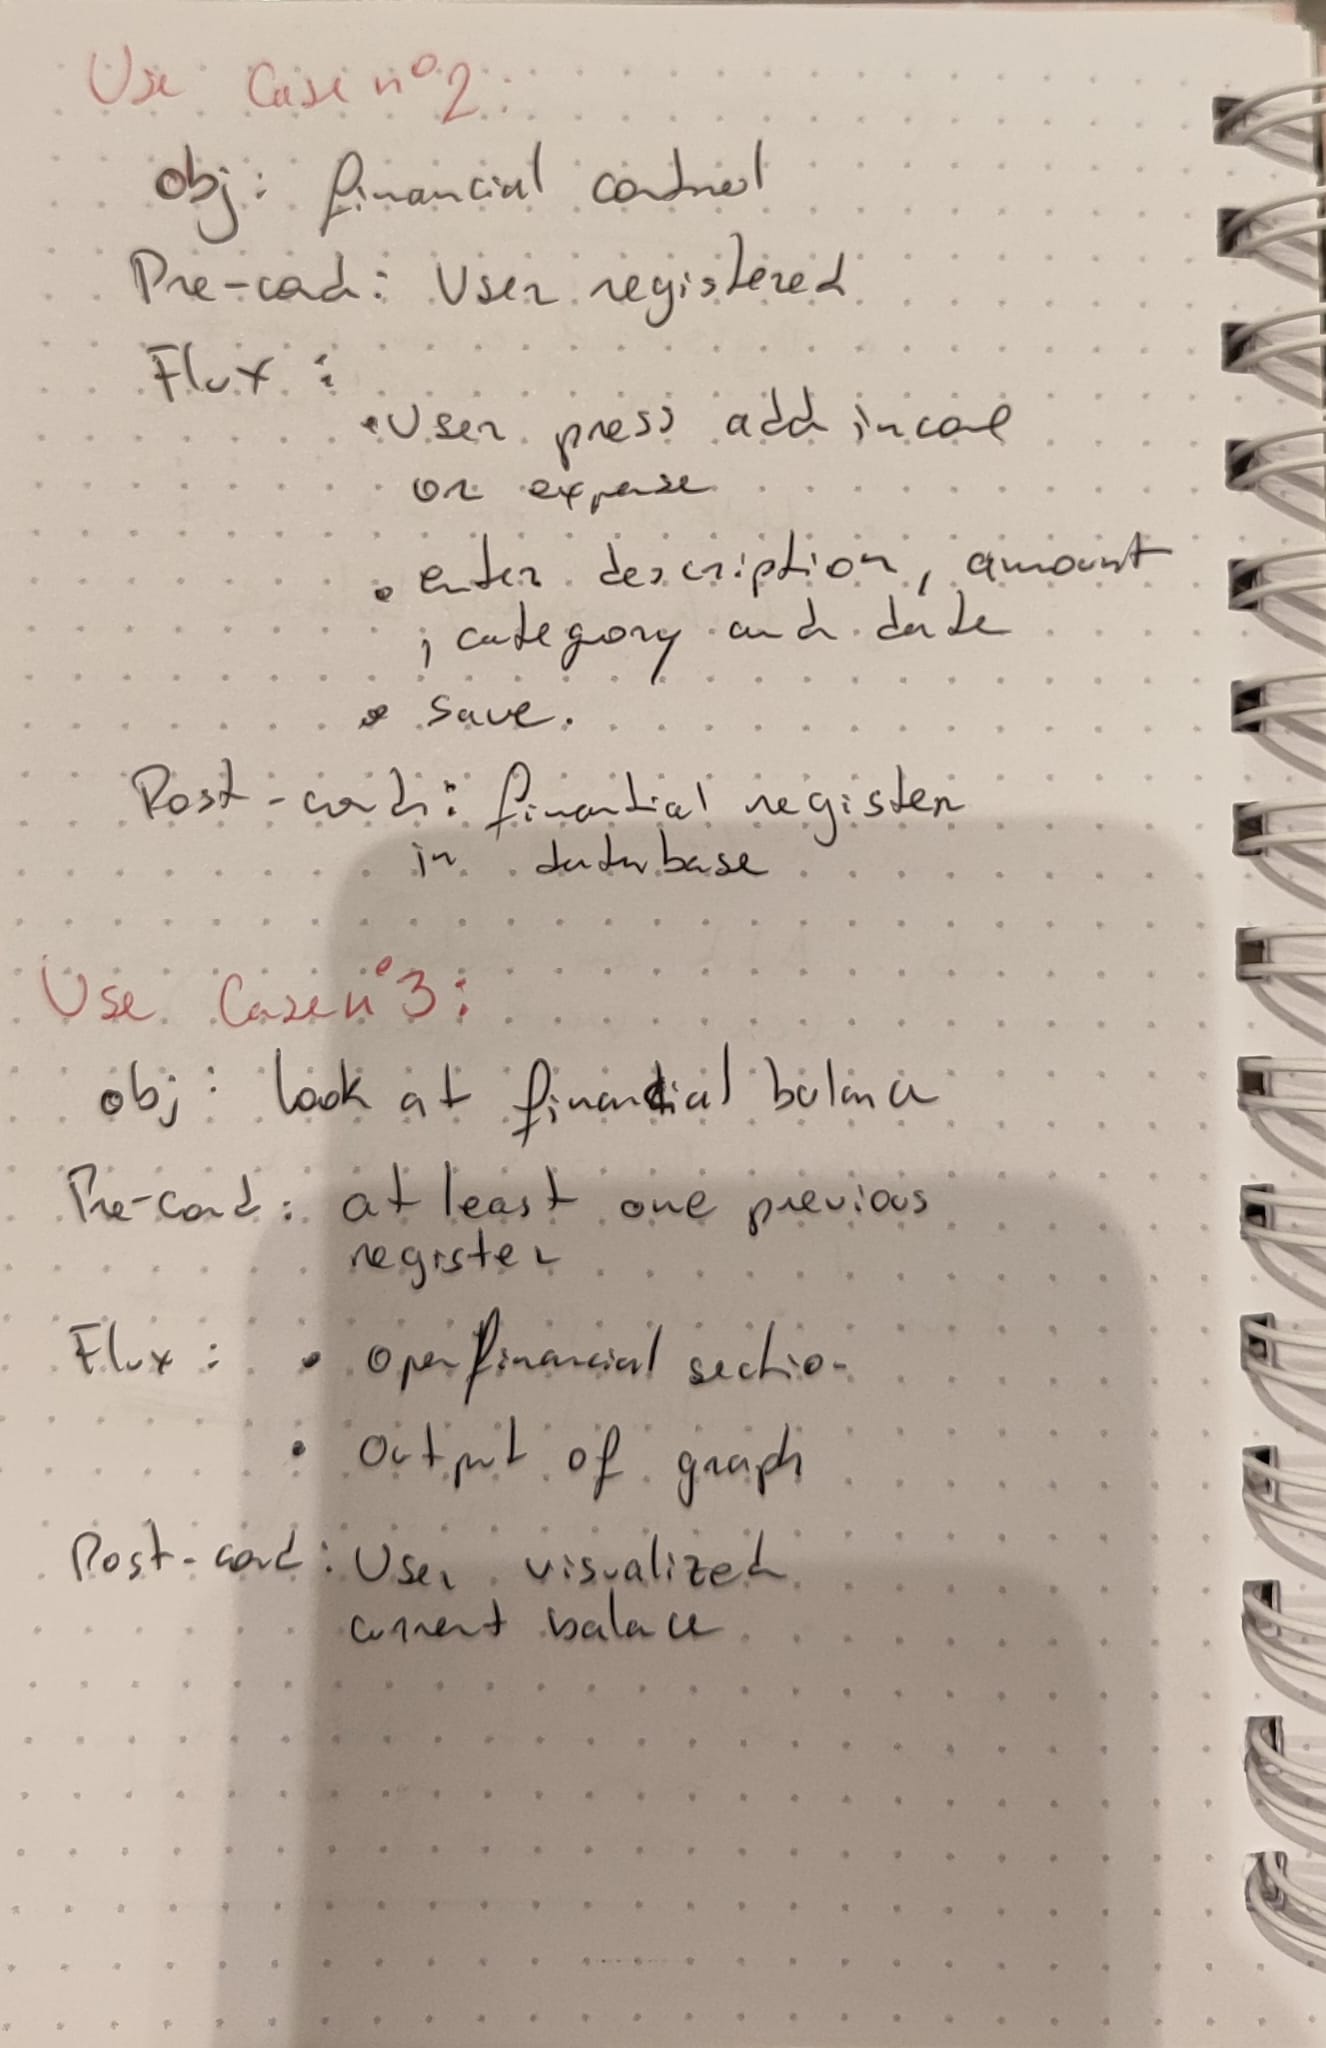 Use Case n°2:
obj: financial control
Pre-cond: User registered
Flux:
• User press add income
or expense
• enter description, amount
, category and date
• save.
Post-cond: finantial register
in database
Use Case n°3:
obj: look at financial balance
Pre-cond: at least one previous
register
Flux: • open financial section
• Output of graph
Post-cond: User visualized
current balance